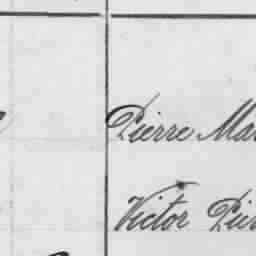 Pierre Mar
Victor Pier